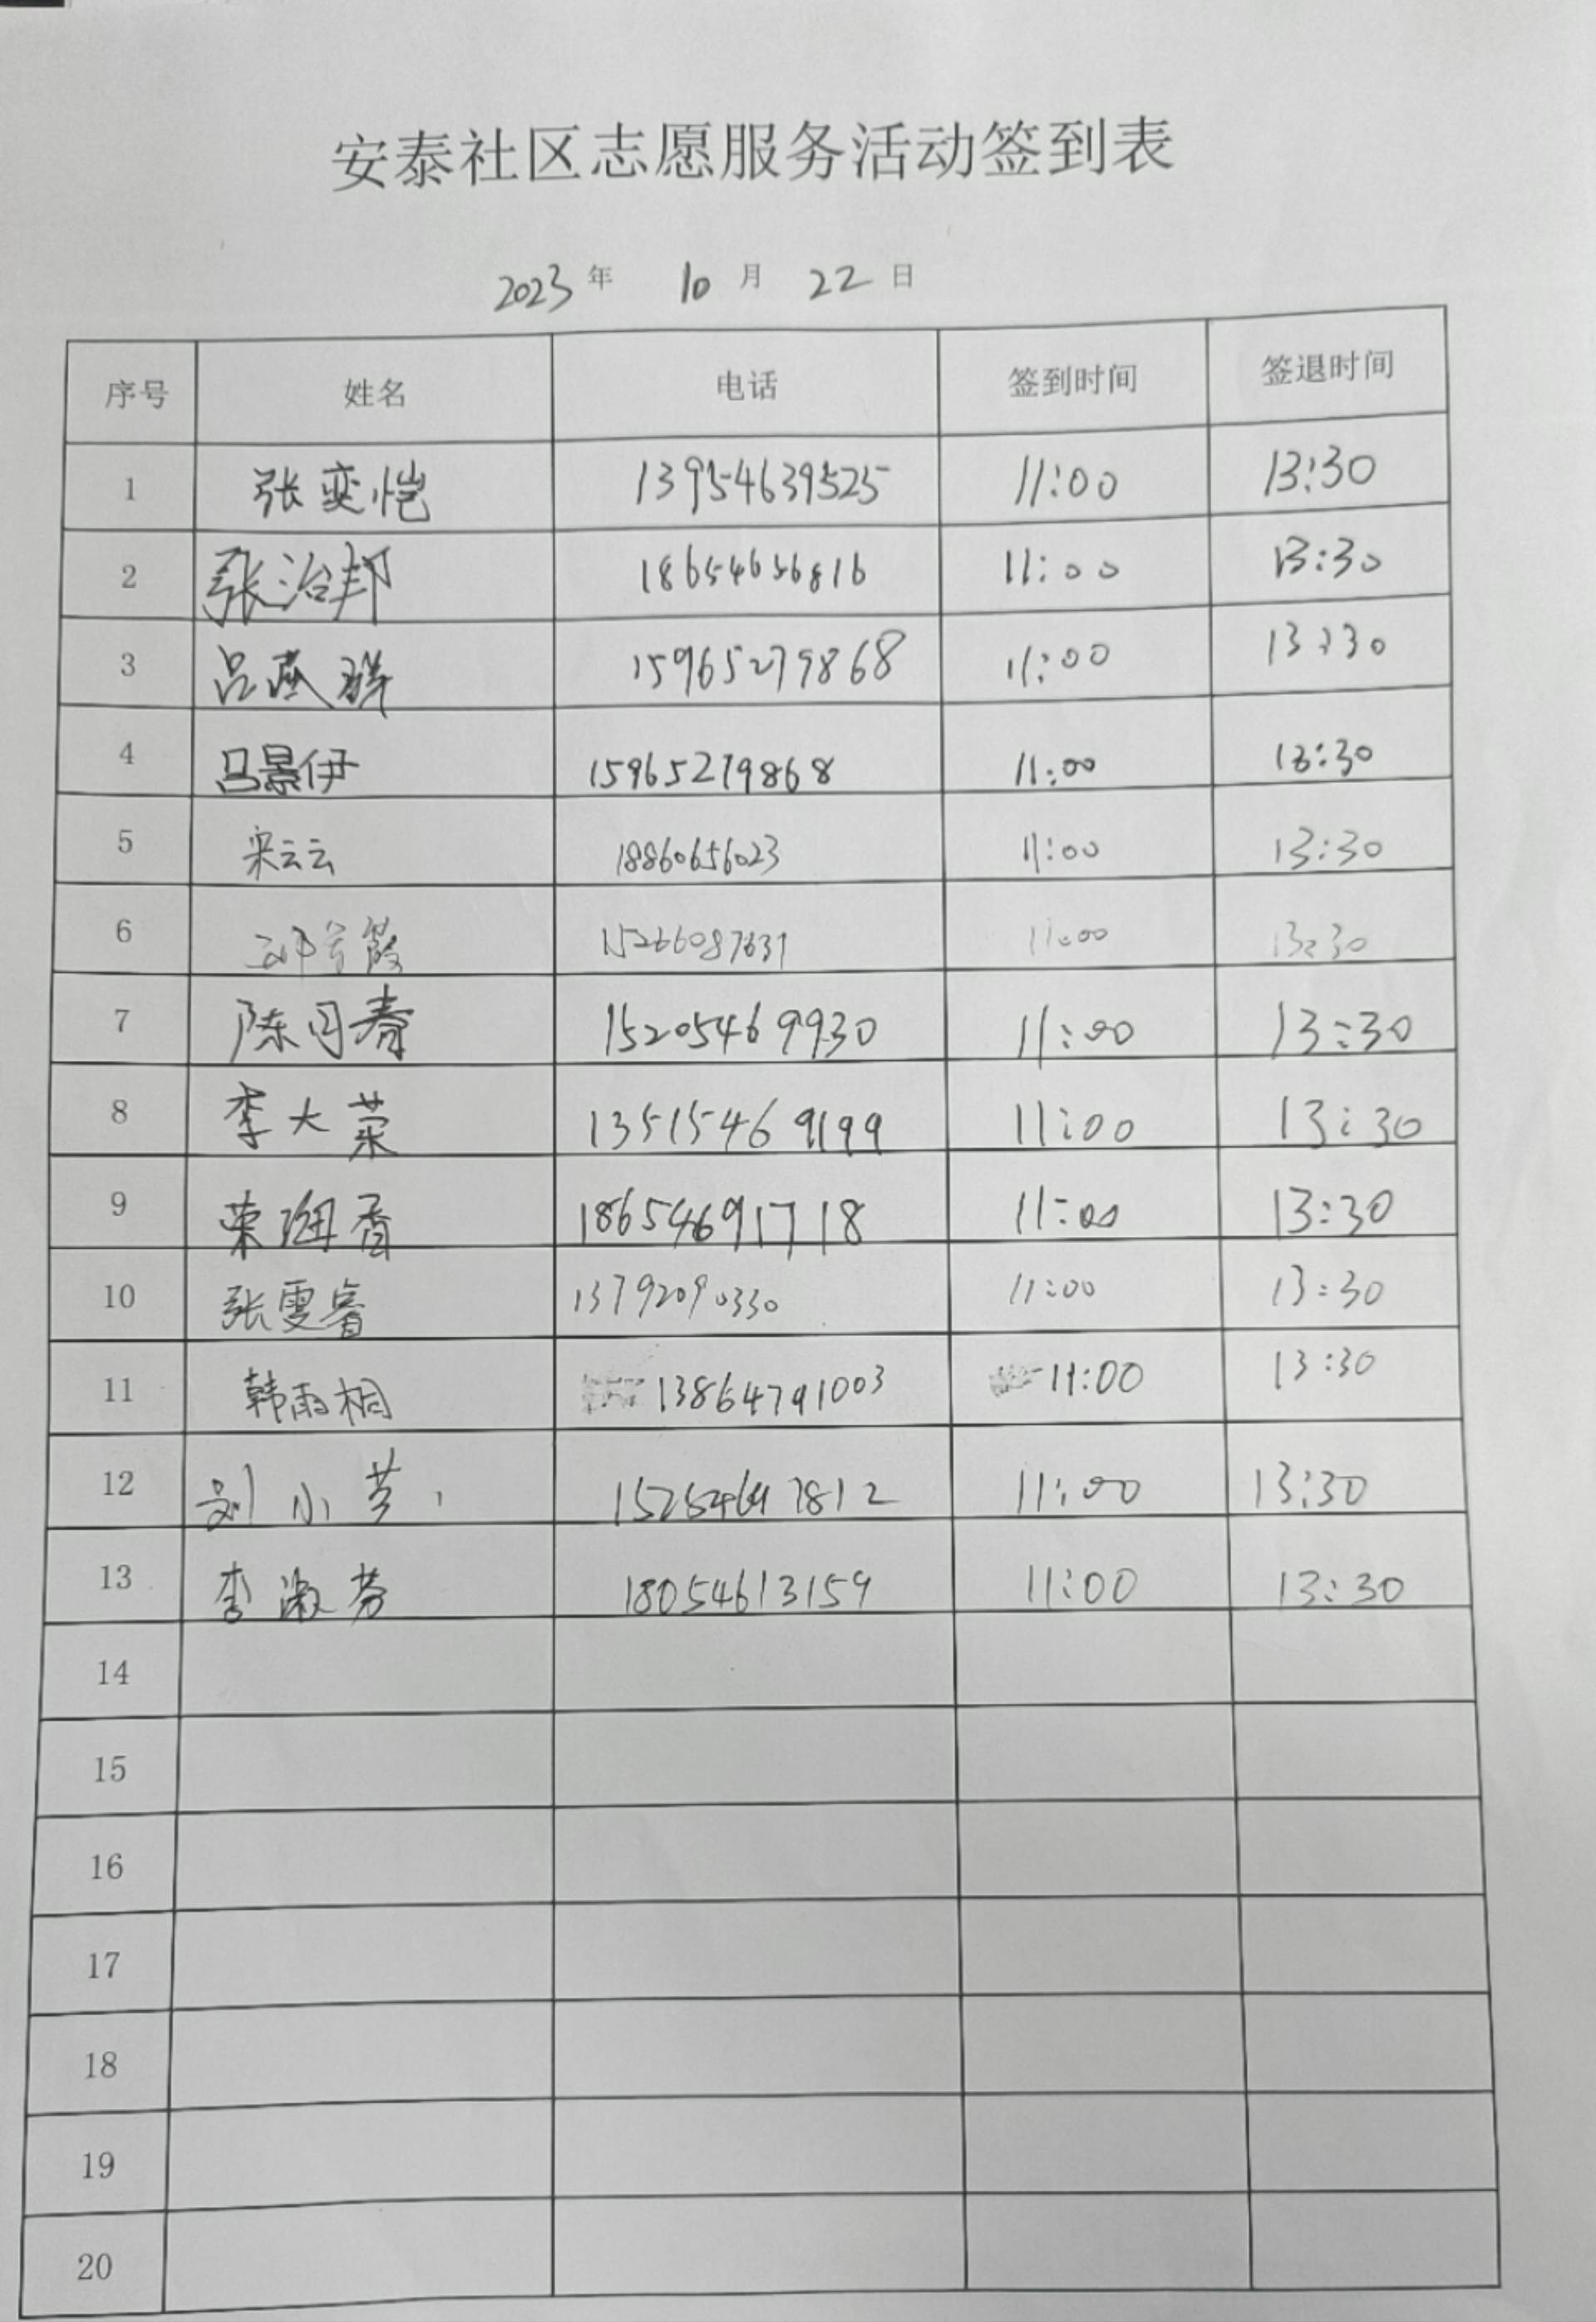 安泰社区志愿服务活动签到表
2023 年 10 月 22 日
序号 姓名 电话 签到时间 签退时间
1 张奕恺 13954639525 11:00 13:30
2 张治邦 18654656816 11:00 13:30
3 吕燕 15965279868 11:00 13:30
4 吕景伊 15965279868 11:00 13:30
5 宋云云 18860656023 11:00 13:30
6 15266087631 11:00 13:30
7 陈月春 15205469930 11:00 13:30
8 李大荣 13515469199 11:00 13:30
9 荣海香 18654691718 11:00 13:30
10 张雯睿 13792090330 11:00 13:30
11 韩雨桐 13864791003 11:00 13:30
12 刘小芳 11:00 13:30
13 李淑芬 18054613159 11:00 13:30
14
15
16
17
18
19
20